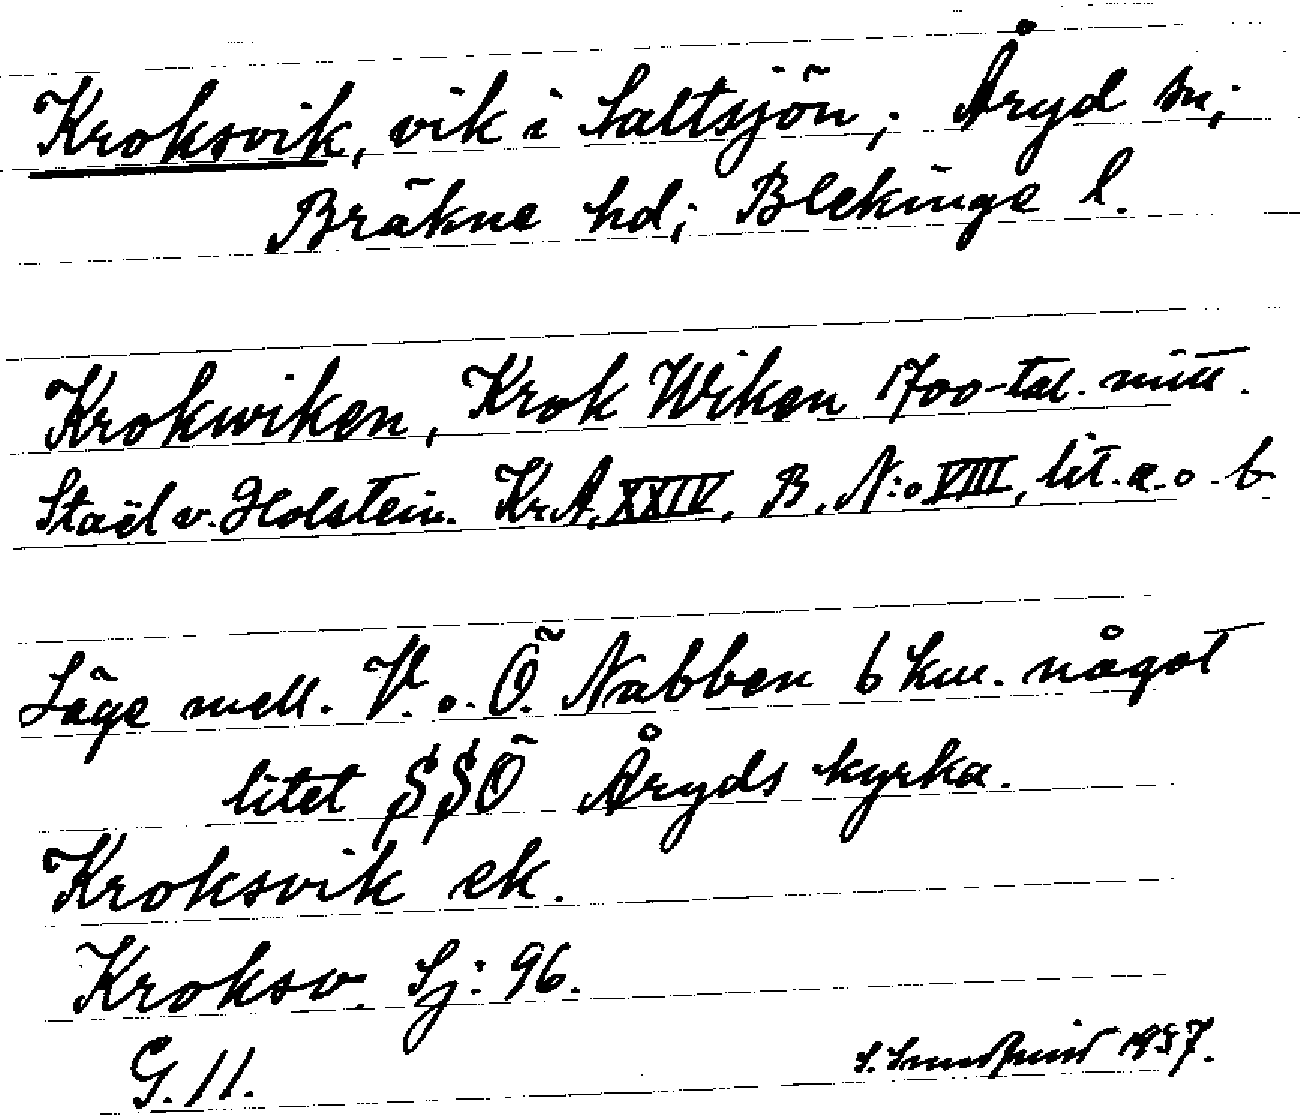 Kroksvik, vik i Saltsjön; Åryd sn;
Bräkne hd; Blekinge l.
Krokwiken, Krok Wiken 1700-tal. mitt.
Staël v. Holstein. Kr.A. XXIV. B. N:o VIII, lit. a. o. b
Läge mell. V. o. Ö. Nabben 6 km. något
litet SSÖ Åryds kyrka.
Kroksvik ek.
Kroksv. Sj: 96.
G. 11.
1957.